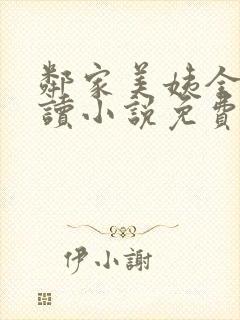 鄰家美姨全
讀小說免費
伊小謝